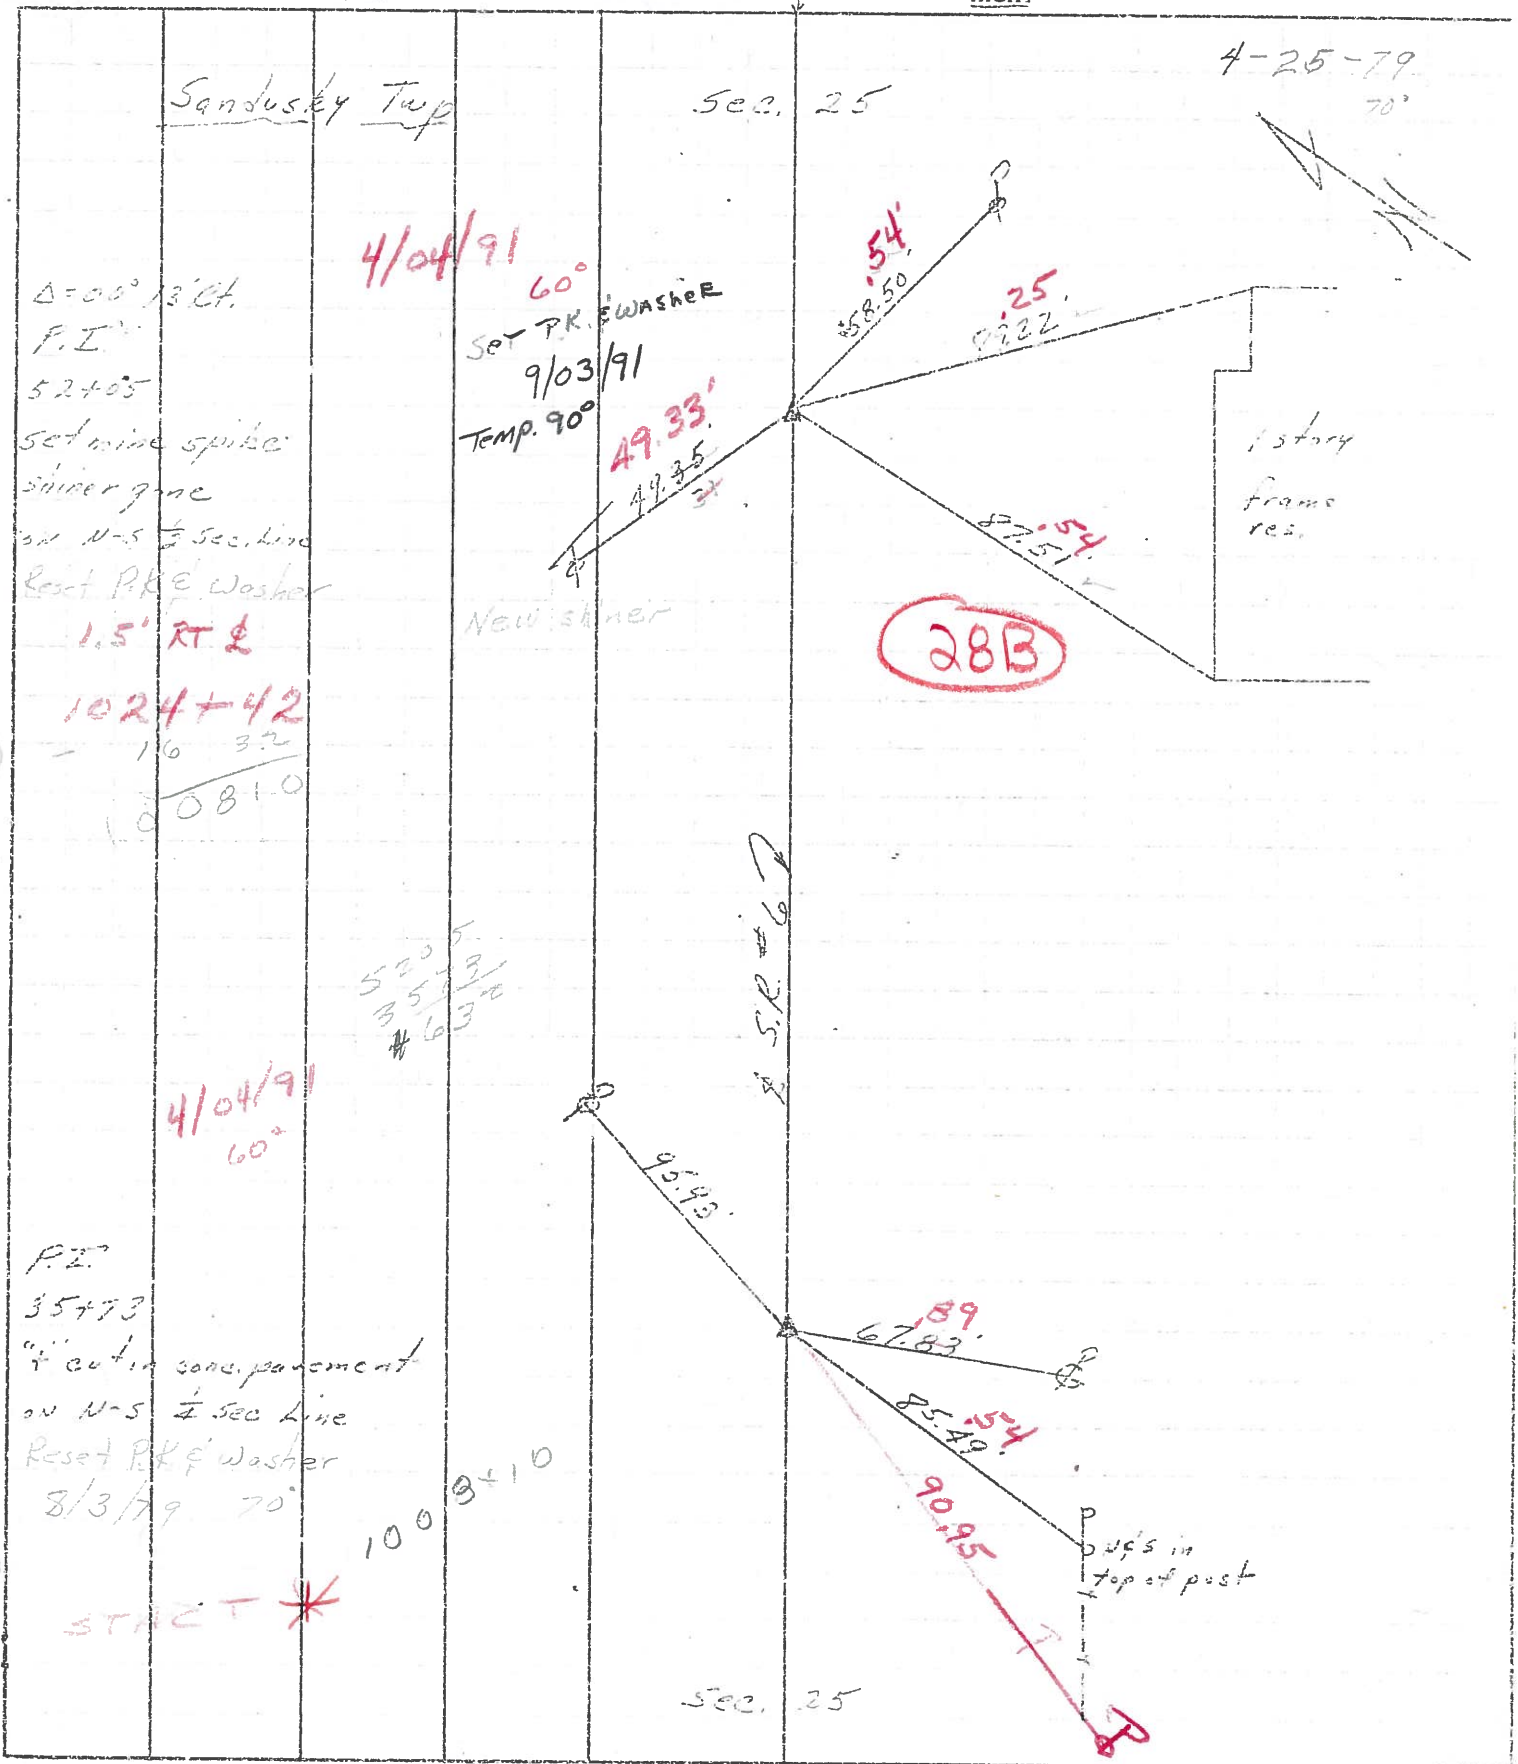 4-25-79
70°
Sandusky Twp
Sec. 25
4/04/91
60°
Set P.K. & WASHER
9/03/91
Temp. 90°
P.I.
52+05
set mine spike
shiner gone
on N-S ½ Sec. Line
Reset P.K & Washer
1.5' RT ℄
1024+42
- 16 32
10081 0
New shiner
.54'
58.50
.25
49.33'
49.35
1 story
frame
res.
87.51
.54
28B
5205
3573
1632
℄ S.R. #6
4/04/91
60°
95.93'
P.I.
35+73
"+" cut in conc. pavement
on N-S ½ Sec Line
Reset P.K & Washer
8/3/79 70°
1008+10
START *
.89
67.83'
85.49'
.54
90.95
N&S in
top of post
Sec. 25